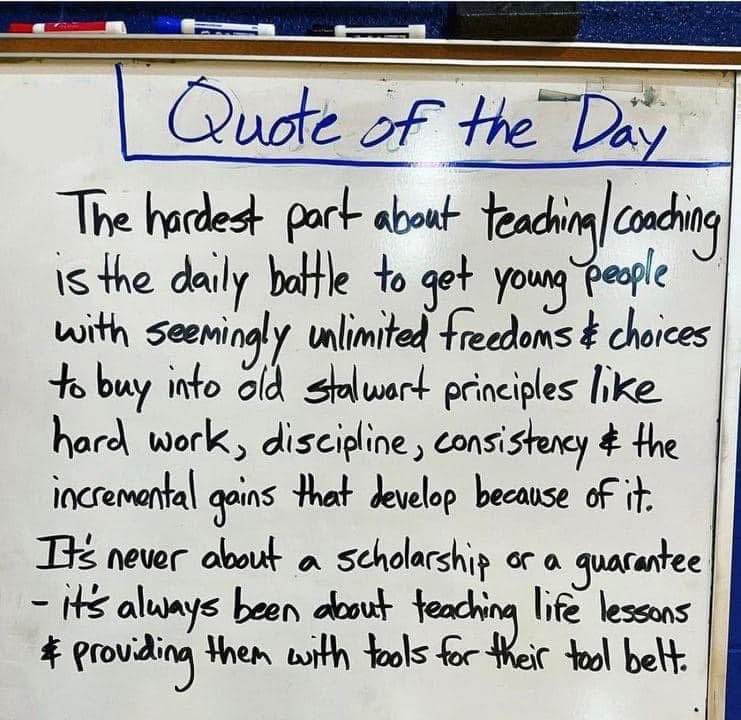 Quote of the Day
The hardest part about teaching/coaching
is the daily battle to get young people
with seemingly unlimited freedoms & choices
to buy into old stalwart principles like
hard work, discipline, consistency & the
incremental gains that develop because of it.
It's never about a scholarship or a guarantee
- it's always been about teaching life lessons
& providing them with tools for their tool belt.